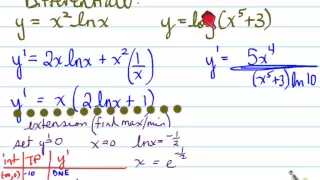 Differentiate:
y = x² ln x
y = log (x⁵+3)
y' = 2x ln x + x² (1/x)
y' = 5x⁴ / (x⁵+3) ln 10
y' = x (2 ln x + 1)
extension (find max/min)
set y'=0 x=0 ln x = -1/2
x = e^(-1/2)
int | TP | y'
-10 | DNE